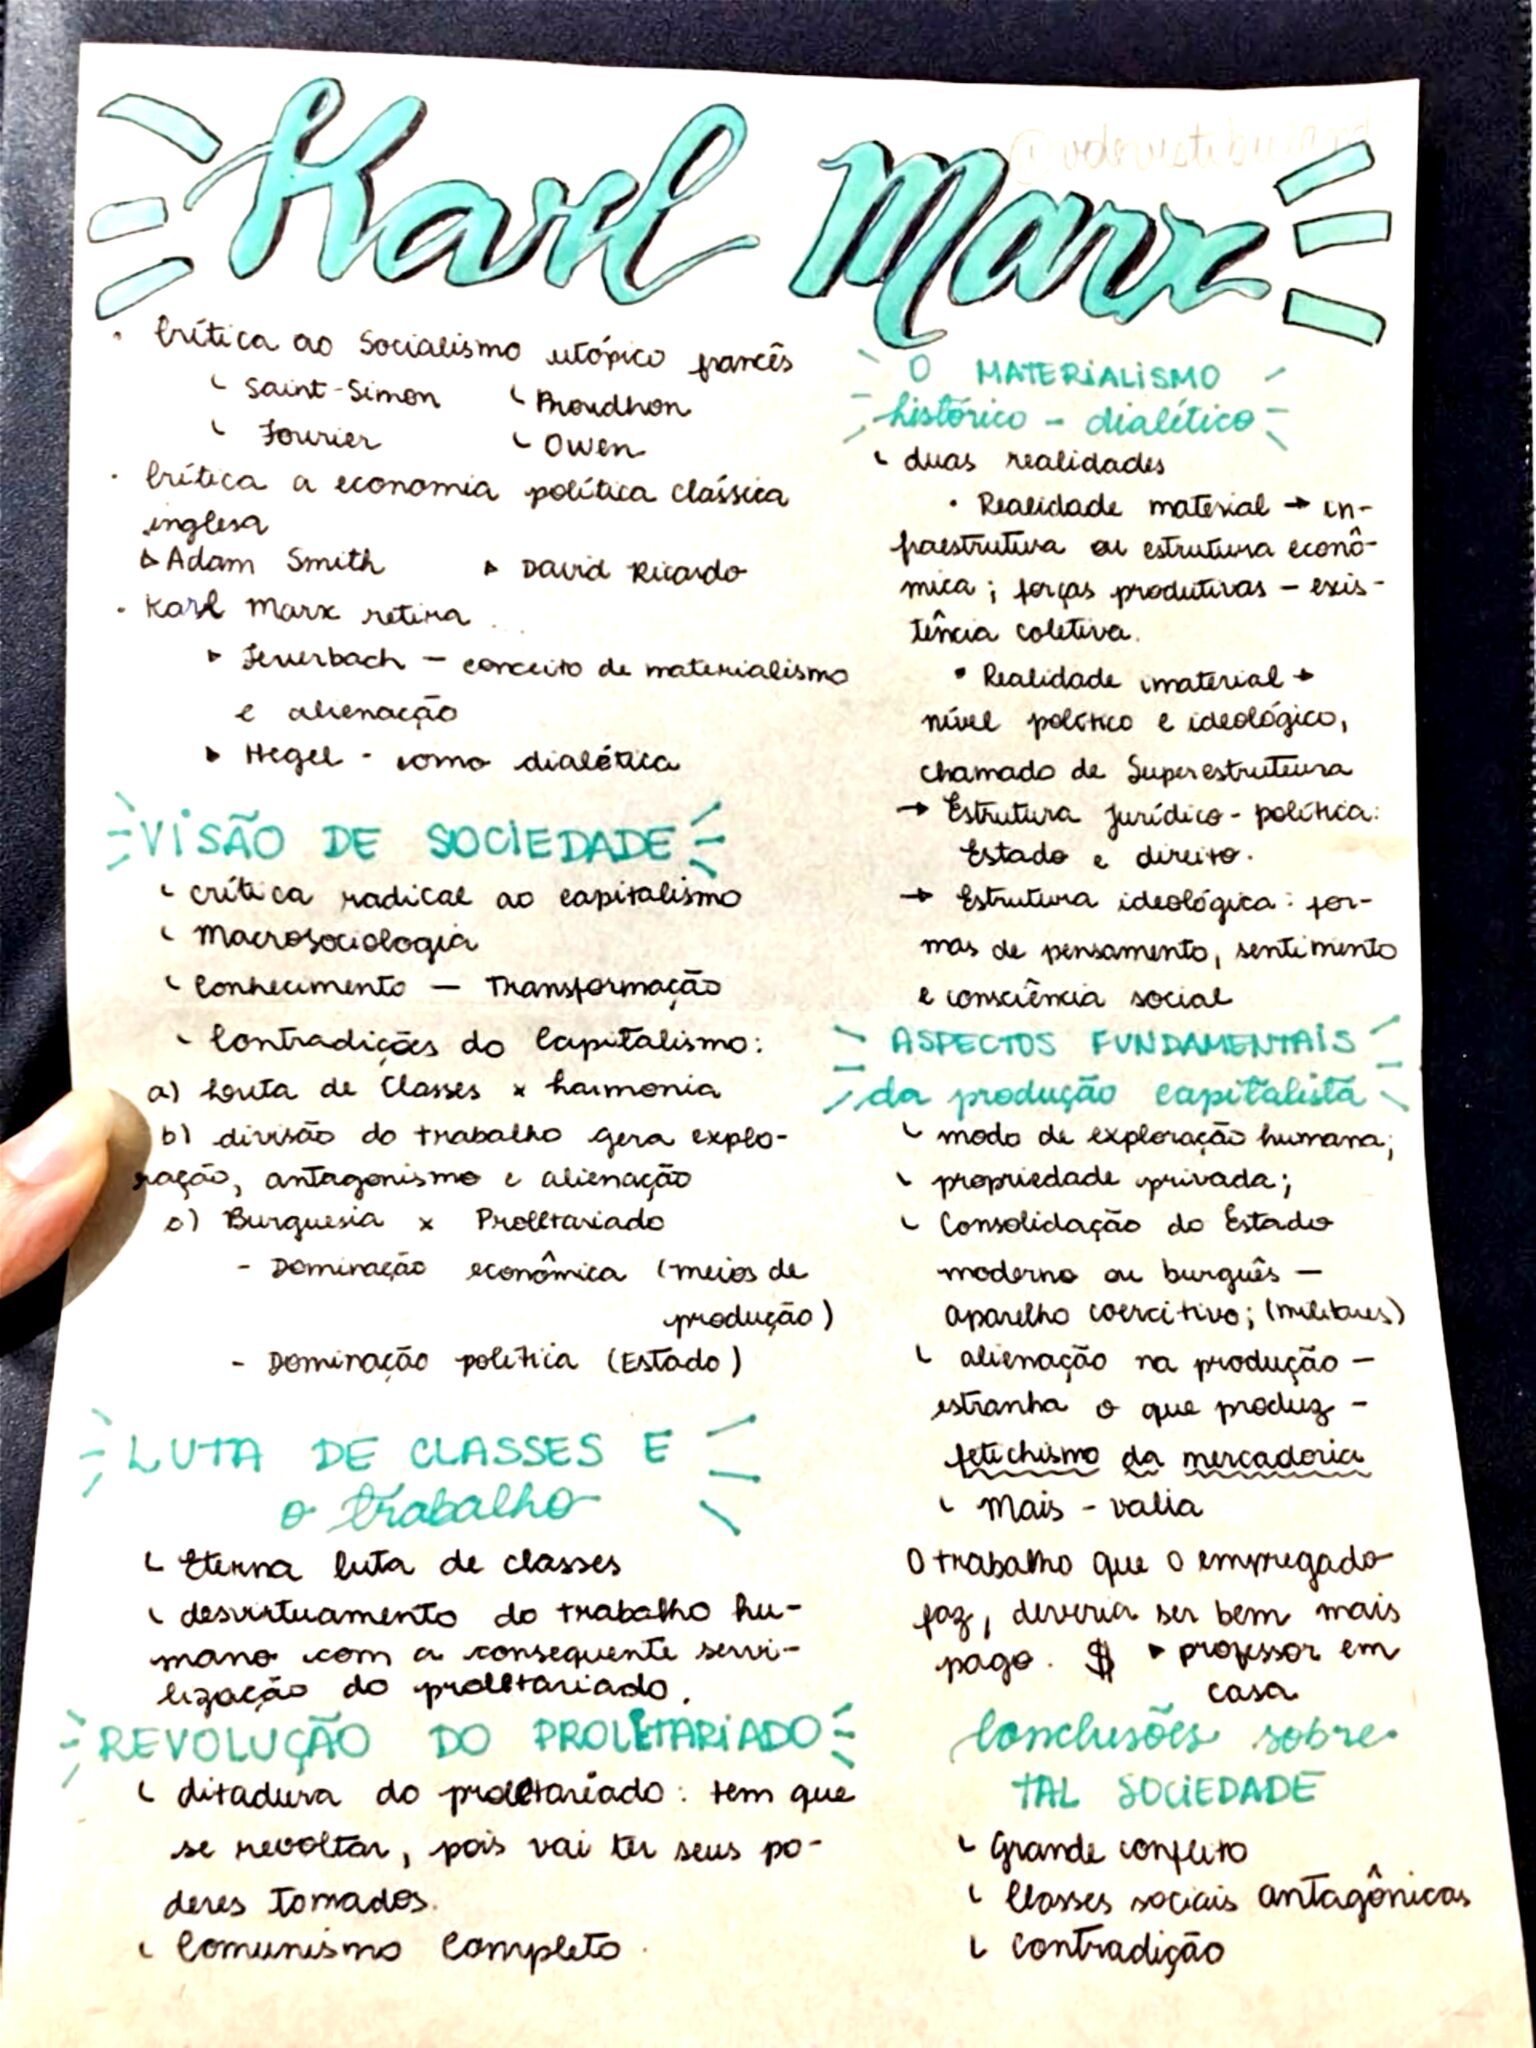 Karl Marx
• Crítica ao Socialismo utópico francês
Saint-Simon
Proudhon
Fourier
Owen
• Crítica a economia política clássica
inglesa
Adam Smith
David Ricardo
• Karl Marx retira
Feuerbach - conceito de materialismo
e alienação
Hegel - como dialética
VISÃO DE SOCIEDADE
crítica radical ao capitalismo
Macrosociologia
Conhecimento - Transformação
Contradições do Capitalismo:
a) Louta de Classes x harmonia
b) divisão do trabalho gera explo-
ração, antagonismo e alienação
c) Burguesia x Proletariado
- Dominação econômica (meios de
produção)
- Dominação política (Estado)
LUTA DE CLASSES E
o trabalho
Eterna luta de classes
desvirtuamento do trabalho hu-
mano com a consequente servi-
lização do proletariado.
REVOLUÇÃO DO PROLETARIADO
ditadura do proletariado: tem que
se revoltar, pois vai ter seus po-
deres tomados.
Comunismo Completo.
O MATERIALISMO
histórico - dialético
duas realidades
• Realidade material → in-
fraestrutura ou estrutura econô-
mica; forças produtivas - exis-
tência coletiva.
• Realidade imaterial →
nível político e ideológico,
chamado de Superestrutura
→ Estrutura Jurídico-política:
Estado e direito.
→ Estrutura ideológica: for-
mas de pensamento, sentimento
e consciência social
ASPECTOS FUNDAMENTAIS
da produção capitalista
modo de exploração humana;
propriedade privada;
Consolidação do Estado
moderno ou burguês -
aparelho coercitivo; (militares)
alienação na produção -
estranha o que produz -
fetichismo da mercadoria
Mais-valia
O trabalho que o empregado
faz, deveria ser bem mais
pago. $ professor em
casa
Conclusões sobre
TAL SOCIEDADE
Grande conflito
Classes sociais antagônicas
Contradição